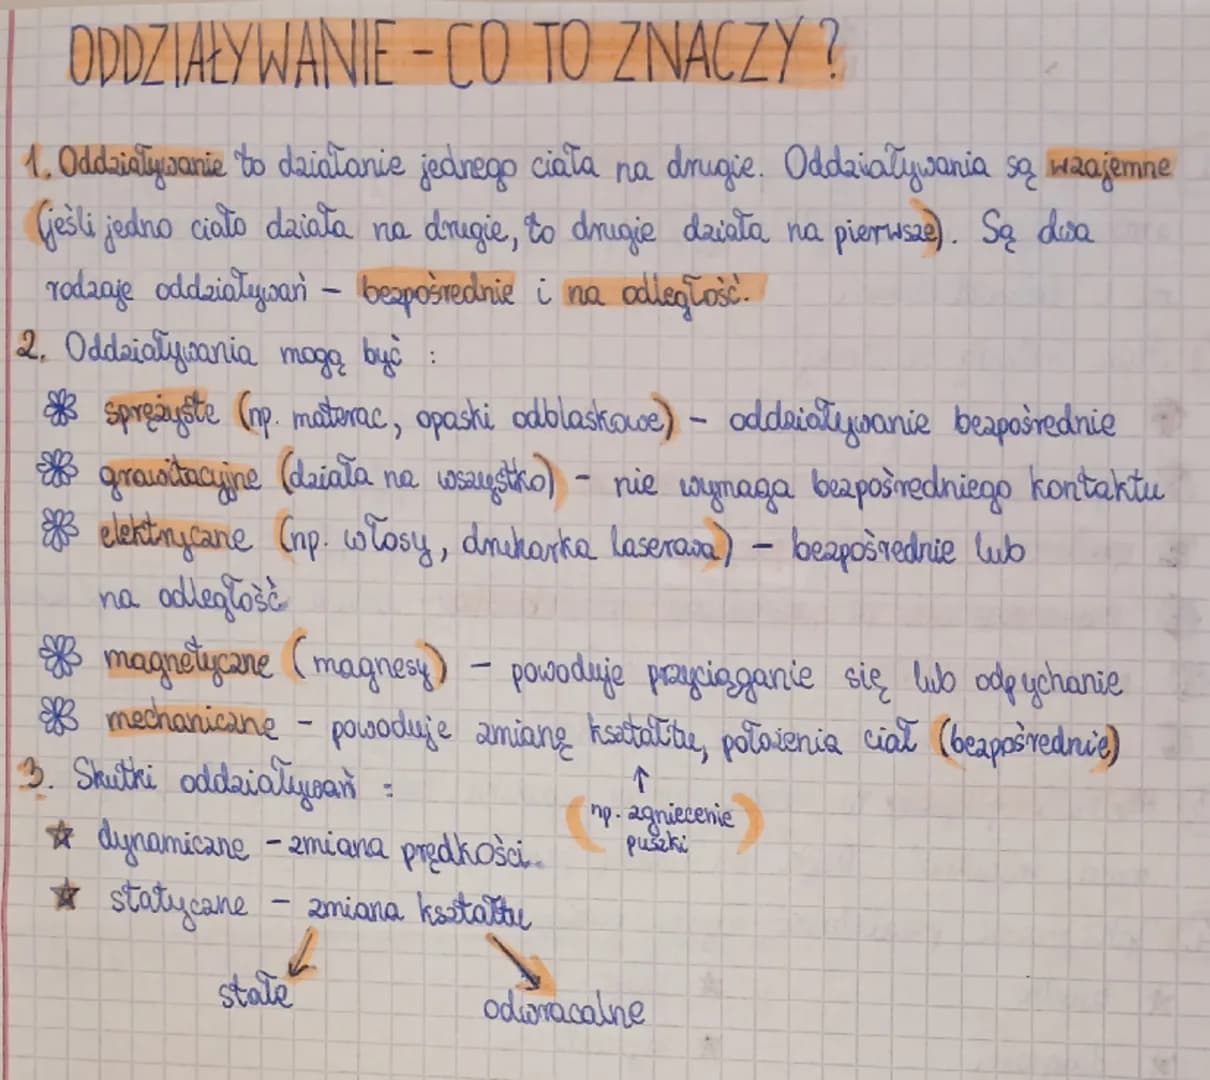 ODDZIAŁYWANIE - CO TO ZNACZY?
1. Oddziaływanie to działanie jednego ciała na drugie. Oddziaływania są wzajemne
(jeśli jedno ciało działa na drugie, to drugie działa na pierwsze). Są dwa
rodzaje oddziaływań - bezpośrednie i na odległość.
2. Oddziaływania mogą być :
sprężyste (np. materac, opaski odblaskowe) - oddziaływanie bezpośrednie
grawitacyjne (działa na wszystko) - nie wymaga bezpośredniego kontaktu
elektryczne (np. włosy, drukarka laserowa) - bezpośrednie lub
na odległość
magnetyczne (magnesy) - powoduje przyciąganie się lub odpychanie
mechaniczne - powoduje zmianę kształtu, położenia ciał (bezpośrednie)
↑
(np. zgniecenie
puszki)
3. Skutki oddziaływań :
☆ dynamiczne - zmiana prędkości
☆ statyczne - zmiana kształtu
stałe
odwracalne